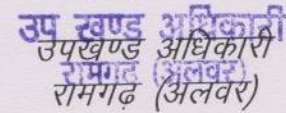 उप खण्ड अधिकारी
उपखण्ड अधिकारी
रामगढ (अलवर)
रामगढ़ (अलवर)